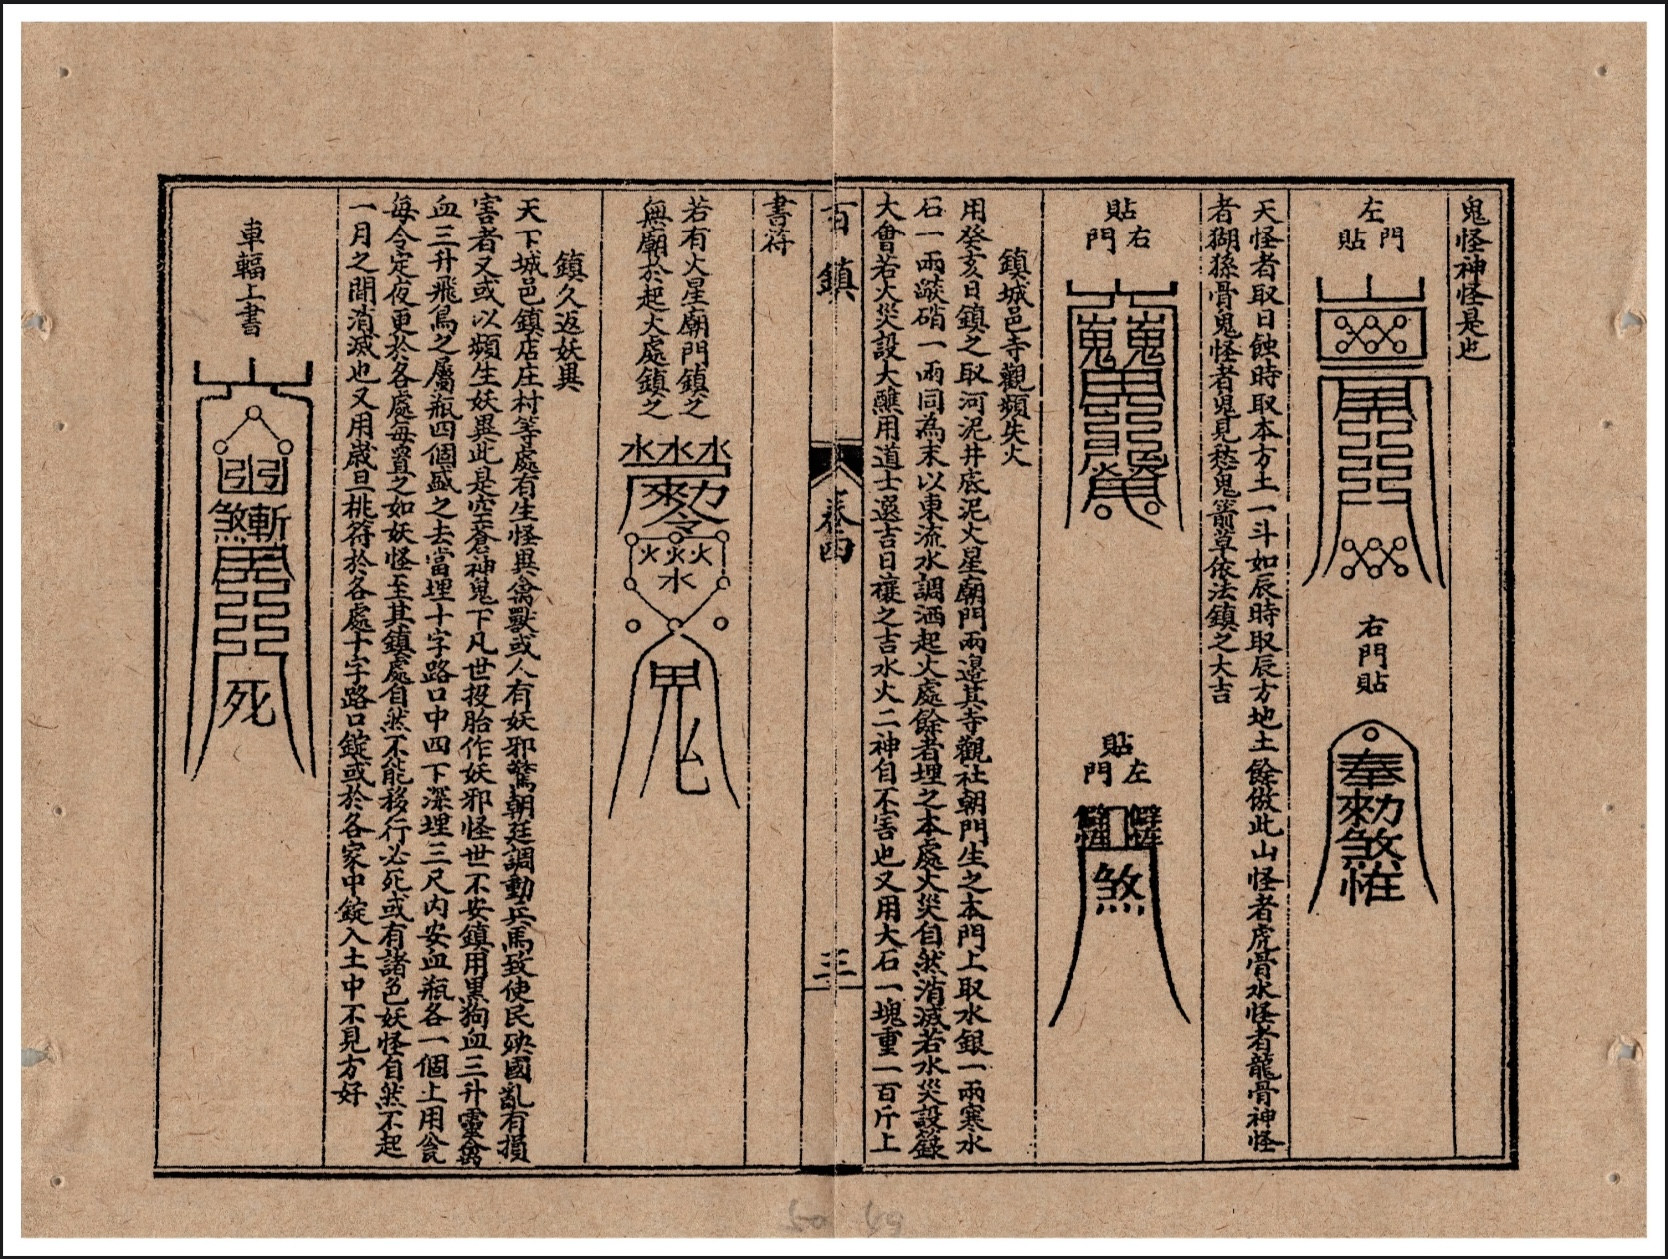 鬼怪神怪是也
左門貼
右門貼
奉勅煞
天怪者取日蝕時取本方土一斗如辰時取辰方地土餘倣此山怪者虎骨水怪者龍骨神怪
者猢猻骨鬼怪者鬼見愁鬼箭草依法鎮之大吉
貼右門
貼左門
煞
鎮城邑寺觀頻失火
用癸亥日鎮之取河泥井底泥火星廟門兩邉其寺觀社朝門生之本門上取水銀一兩寒水
石一兩燄硝一兩同為末以東流水調洒起火處餘者埋之本處火災自然消滅若水災設籙
大會若火災設大醮用道士選吉日禳之吉水火二神自不害也又用大石一塊重一百斤上
百鎮
卷四
三
書符
若有火星廟門鎮之
無廟於起火處鎮之
水水水
勅令
火火火
水
鬼
鎮久返妖異
天下城邑鎮店庄村等處有生怪異禽獸或人有妖邪驚朝廷調動兵馬致使民殃國亂有損
害者又或以頻生妖異此是空蒼神鬼下凡世投胎作妖邪怪世不安鎮用黑狗血三升靈禽
血三升飛鳥之屬瓶四個盛之去當埋十字路口中四下深埋三尺内安血瓶各一個上用瓮
每令定夜更於各處每置之如妖怪至其鎮處自然不能移行必死或有諸色妖怪自然不起
一月之間消滅也又用歲旦桃符於各處十字路口錠或於各家中錠入土中不見方好
車輻上書
斬煞
死